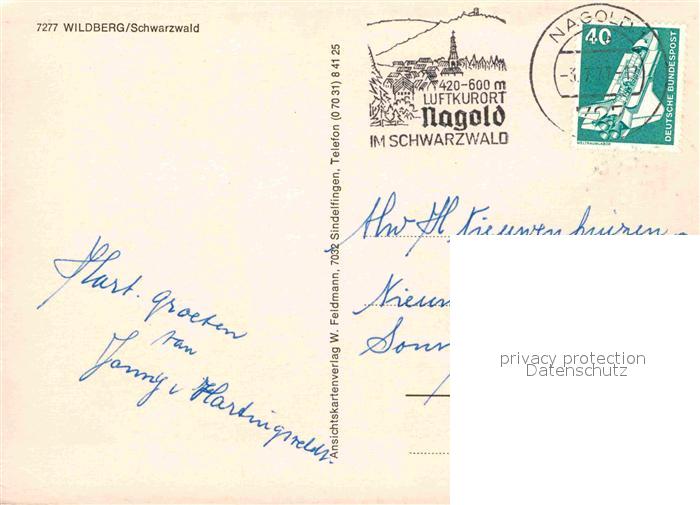 7277 WILDBERG/Schwarzwald
420-600 m
LUFTKURORT
Nagold
IM SCHWARZWALD
NAGOLD
40
DEUTSCHE BUNDESPOST
WELTRAUMLABOR
Ansichtskartenverlag W. Feldmann, 7032 Sindelfingen, Telefon (0 70 31) 8 41 25
Hart. groeten
van
Hartingsveldt.
H. Nieuwenhuizen
Nieuw
privacy protection
Datenschutz